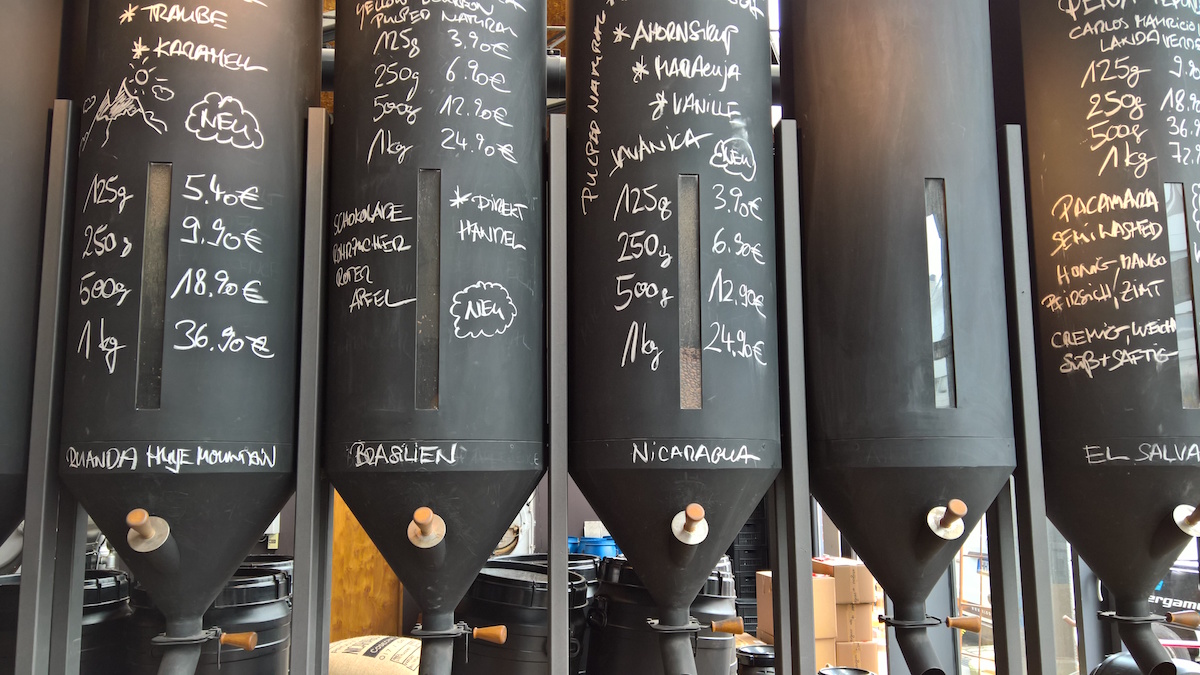 * TRAUBE
* KARAMELL
NEU
125g 5.40€
250g 9.90€
500g 18.90€
1kg 36.90€
RUANDA HUYE MOUNTAIN
PULPED NATURAL
125g 3.90€
250g 6.90€
500g 12.90€
1kg 24.90€
SCHOKOLADE
ROHRZUCKER
ROTER
APFEL
* DIREKT
HANDEL
NEU
BRASILIEN
PULPED NATURAL
* AHORNSIRUP
* MARACUJA
* VANILLE
JAVANICA
NEU
125g 3.90€
250g 6.90€
500g 12.90€
1kg 24.90€
NICARAGUA
CARLOS MAURICIO
LANDAVERDE
125g 9.9
250g 18.9
500g 36.9
1kg 72.9
PACAMARA
SEMI WASHED
HONIG, MANGO
PFIRSICH, ZIMT
CREMIG, WEICH
SÜß + SAFTIG
EL SALVA
ergam